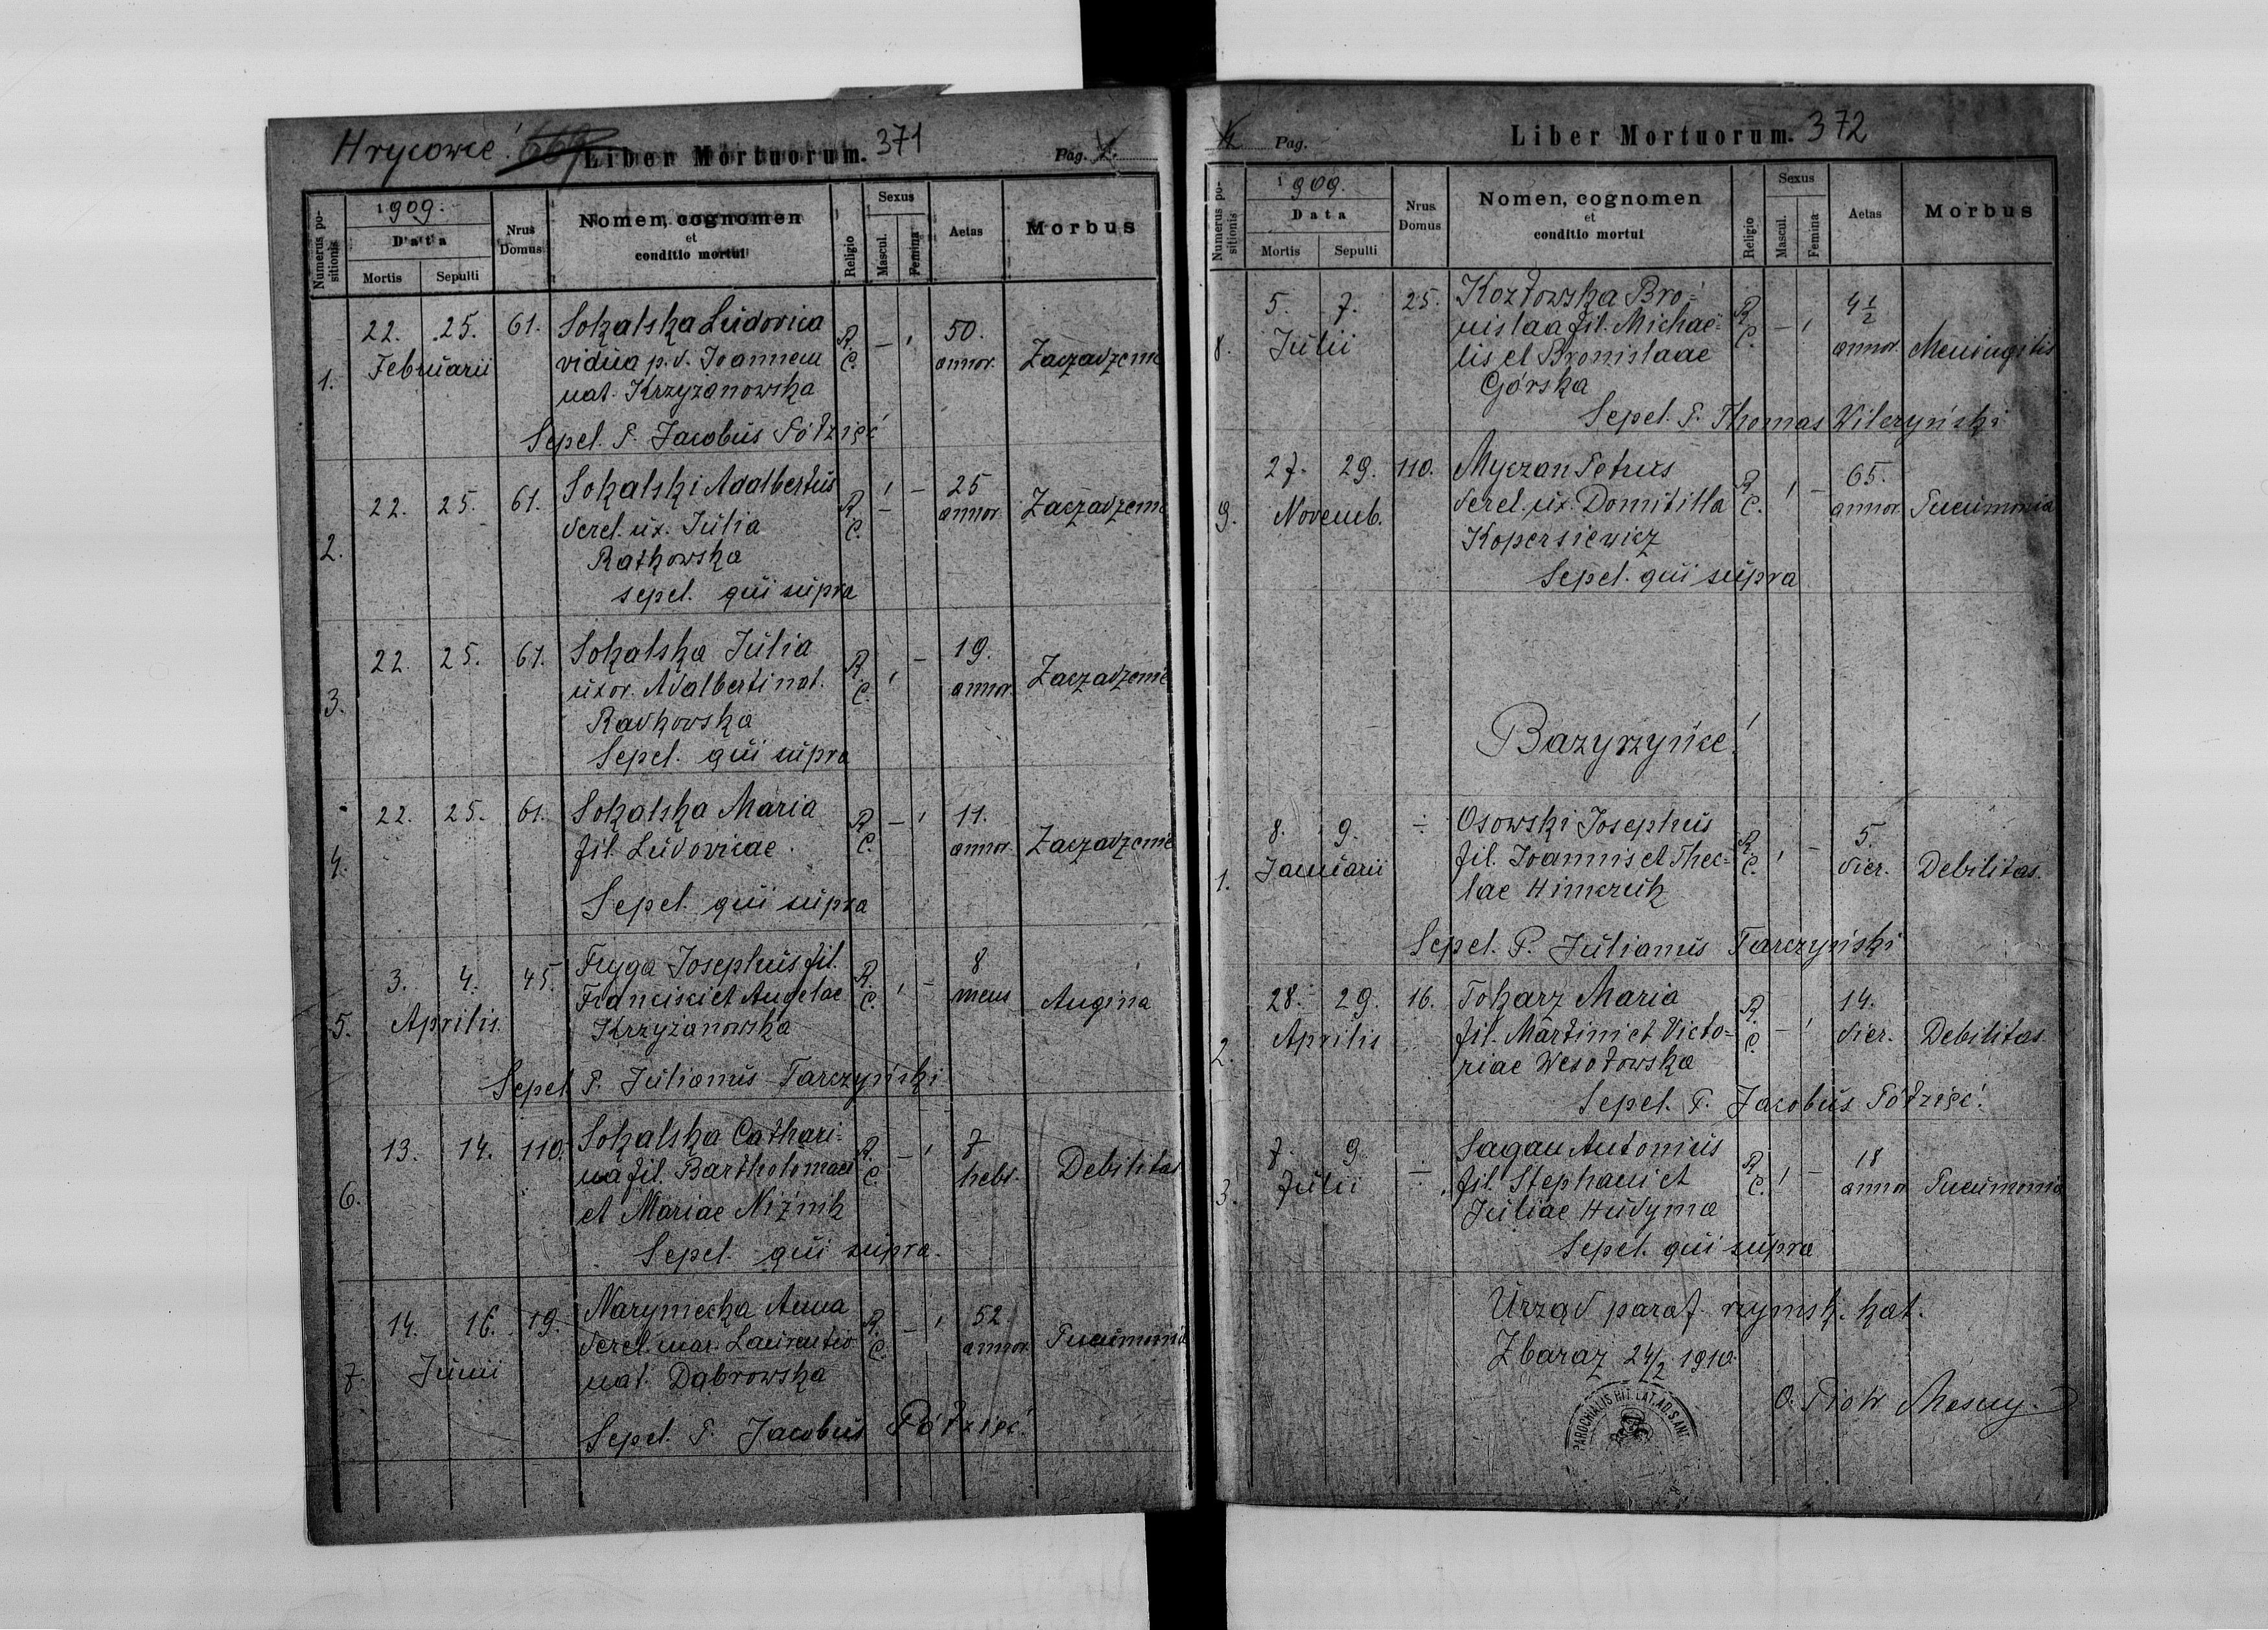 Hrycowce! 669 Liber Mortuorum. 371 Pag. 1.
Numerus positionis 1909. Data Mortis Sepulti Nrus Domus Nomen, cognomen et conditio mortui Religio Sexus Mascul. Femina Aetas Morbus
22. 25. 61. Sokalska Ludovica 50.
Februarii vidua p. d. Joannem R. C. – ı annor. Zaczadzenie
1. nat. Krzyżanowska
Sepel. P. Jacobus Półzięć
22. 25. 61. Sokalski Adalbertus R. C. ı – 25
derel. ux. Julia annor. Zaczadzenie
2. Ratkowska
sepel. qui supra
22. 25. 61. Sokalska Julia R. C. ı – 19.
uxor. Adalberti nat. annor. Zaczadzenie
3. Radkowska
Sepel. qui supra
22. 25. 61. Sokalska Maria R. C. – ı 11.
4. fil. Ludovicae. annor. Zaczadzenie
Sepel. qui supra
3. 4. 45. Fryga Josephus fil. R. C. ı – 8
Francisci et Angelae mens Angina
5. Aprilis. Krzyżanowska
Sepel. P. Julianus Tarczyński
13. 14. 110. Sokalska Cathari- R. C. – ı 7
na fil. Bartholomaei hebt. Debilitas
6. et Mariae Niżnik
Sepel. qui supra.
14. 16. 19. Narymecka Anna R. C. – ı 52.
derel. mar. Laurentio annor. Pneumonia
7. Junii nat. Dąbrowska
Sepel. P. Jacobus Półzięć.
Pag. Liber Mortuorum. 372
Numerus positionis 1909. Data Mortis Sepulti Nrus Domus Nomen, cognomen et conditio mortui Religio Sexus Mascul. Femina Aetas Morbus
5. 7. 25. Kozłowska Bro- R. C. – ı 4 1/2
8. Julii nislaa fil. Michae- annor. Meningitis
lis et Bronislaae
Górska
Sepel. P. Thomas Wilczyński
27. 29. 110. Myczan Petrus R. C. ı – 65.
9. Novemb. derel. ux. Domitilla annor. Pneumonia
Kopersiewicz
Sepel. qui supra
Bazyrzyńce!
8. 9. ÷ Osowski Josephus R. C. ı – 5.
1. Januarii fil. Joannis et Thec- dier. Debilitas.
lae Himczuk
Sepel. P. Julianus Tarczyński
28. 29. 16. Tokarz Maria R. C. – ı 14.
2. Aprilis fil. Martini et Victo- dier. Debilitas.
riae Wesołowska
Sepel. P. Jacobus Półzięć.
7. 9. Sagan Antonius R. C. ı – 18
3. Julii ÷ fil. Stephani et annor Pneumonia
Juliae Hudyma
Sepel. qui supra
Urząd paraf. rzymsk. kat.
Zbaraz 24/2 1910.
O. Piotr
PAROCHIALIS RIT. LAT. AD. S. ANT.